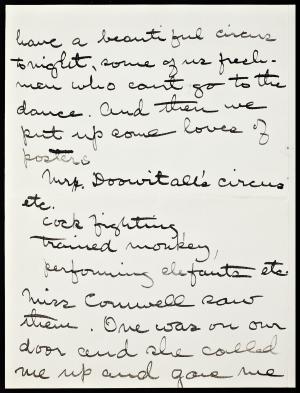 have a beautiful circus
tonight, some of us fresh-
men who can't go to the
dance. And then we
put up some loves of
posters
Mrs. Doowitall's circus
etc.
cock fighting
trained monkey,
performing elefants etc
Miss Cornwell saw
them. One was on our
door and she called
me up and gave me